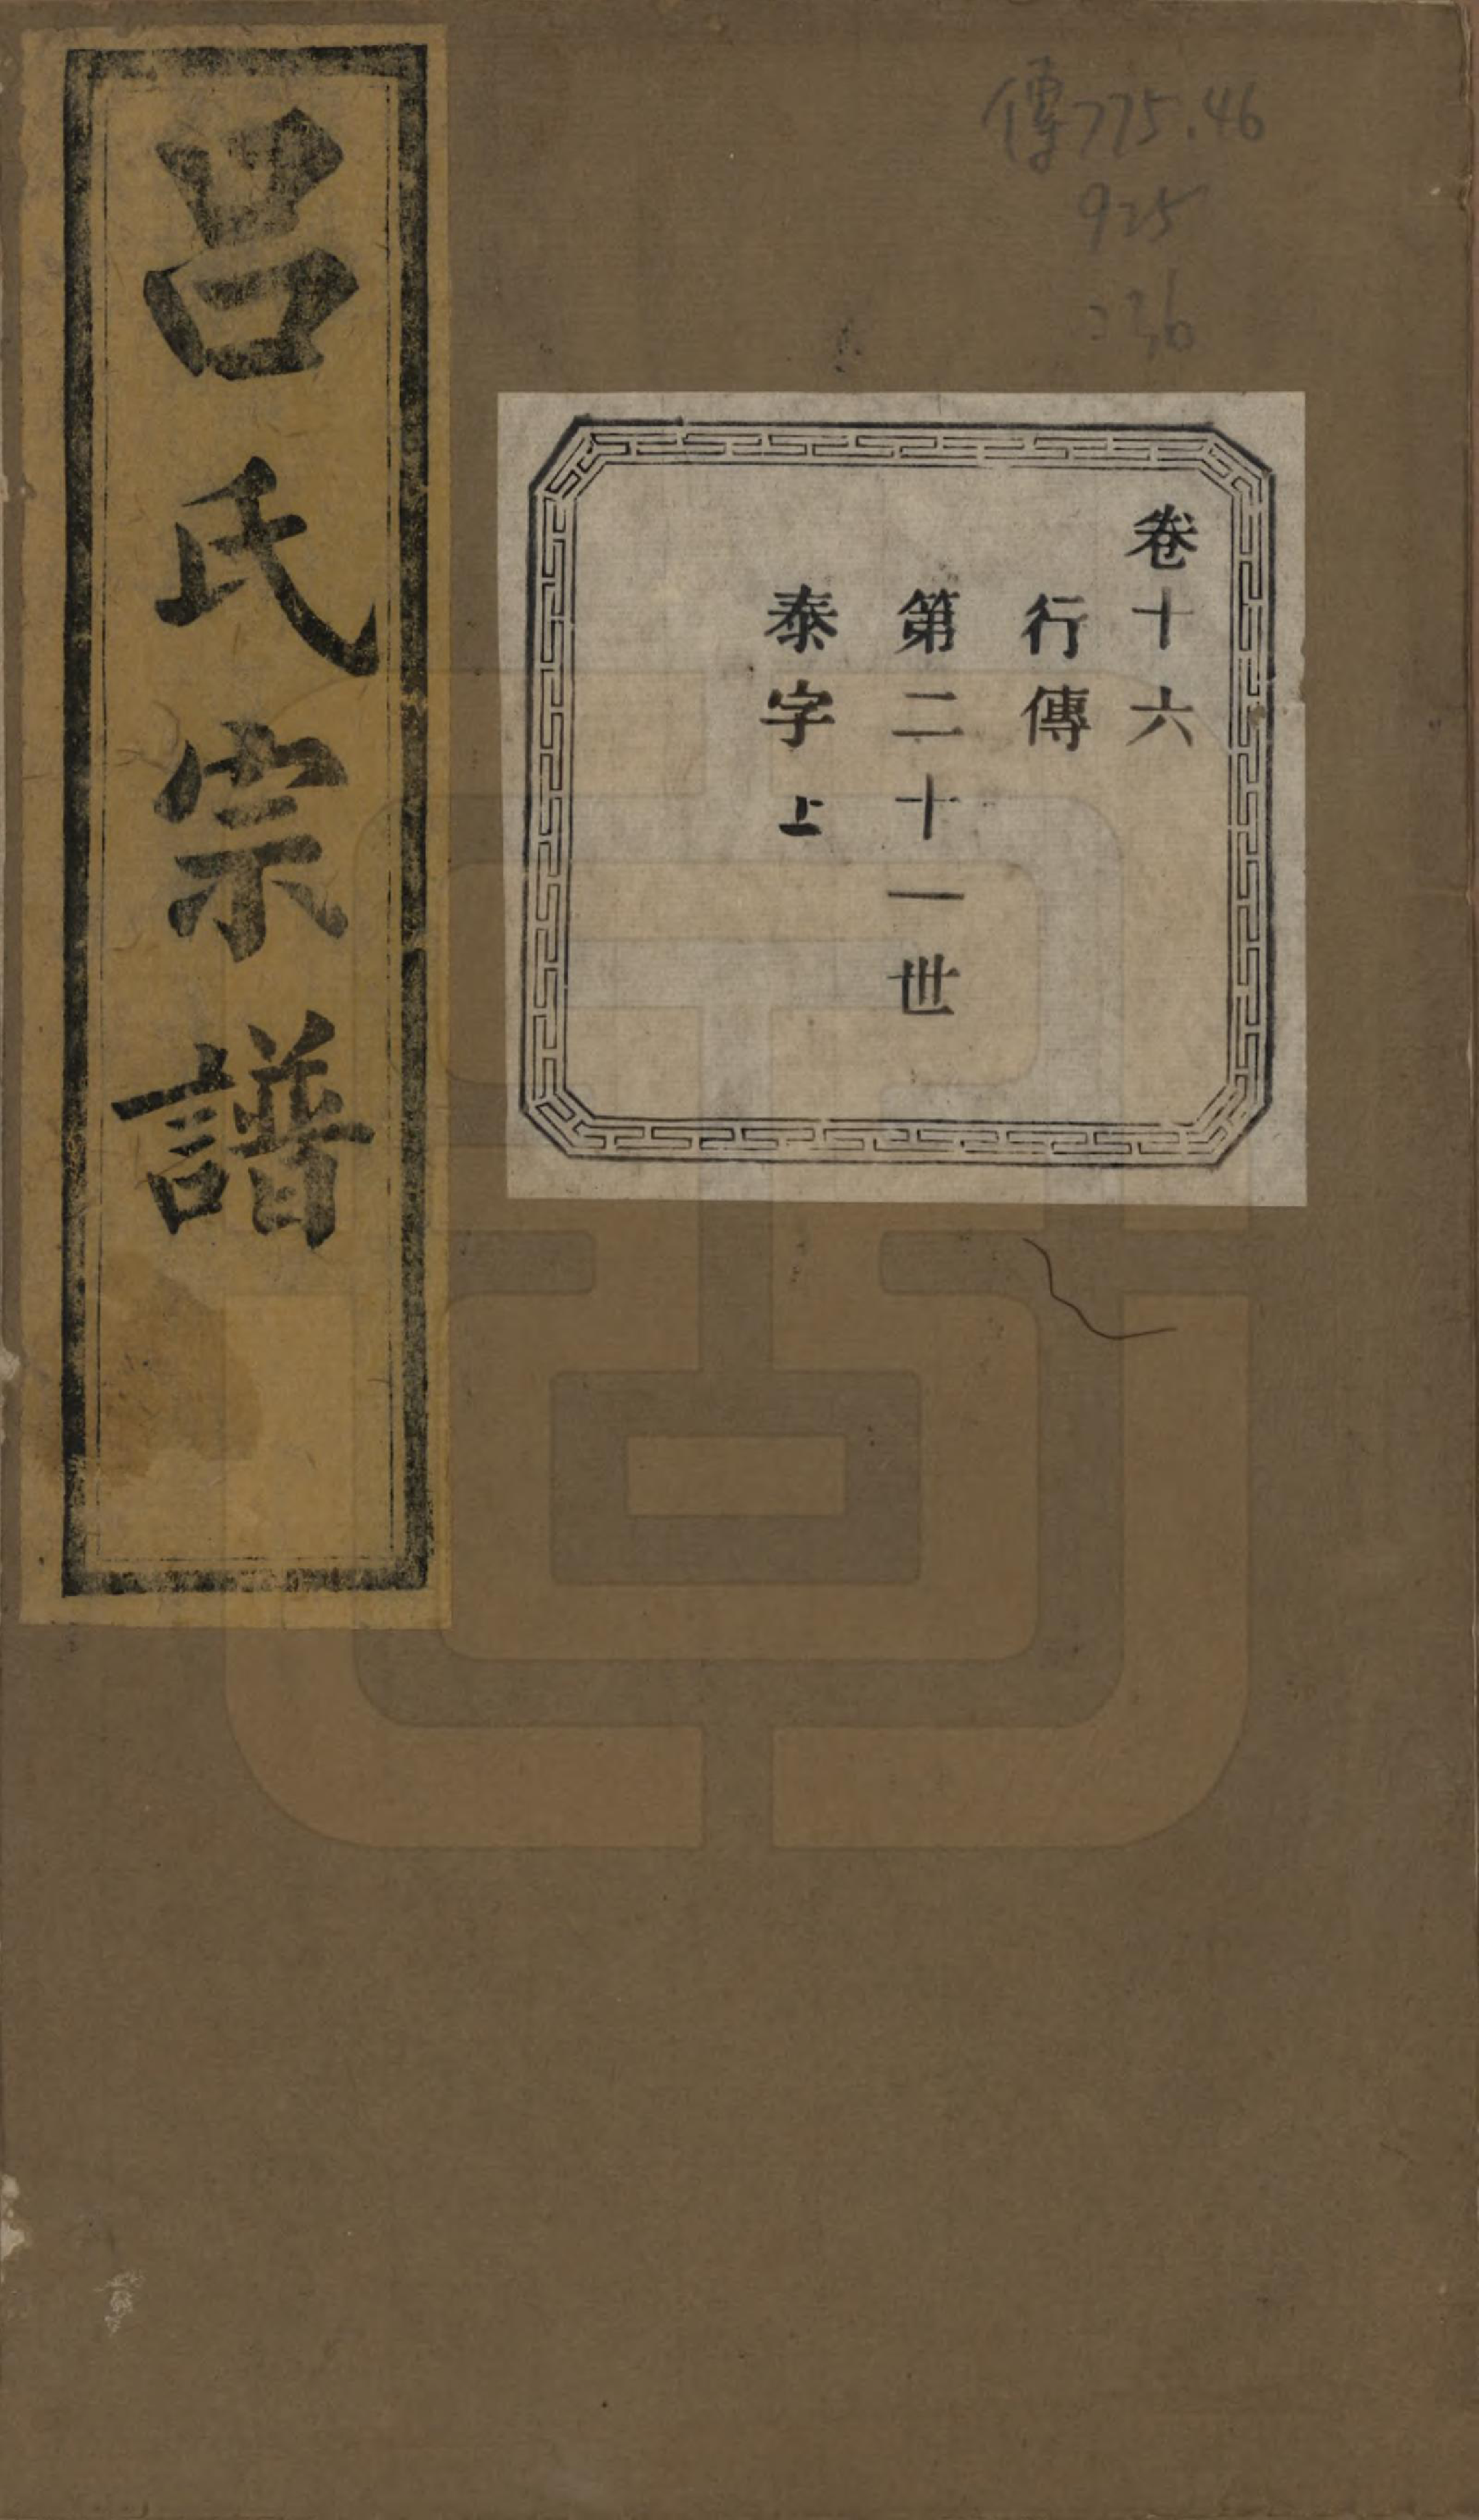 呂氏宗譜
傳775.46
925
236
卷十六
行傳
第二十一世
泰字上